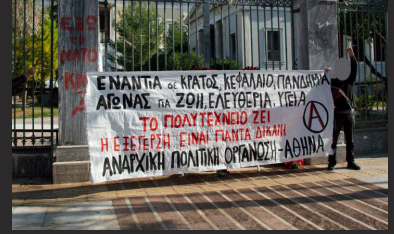 ΕΞΩ
ΤΟ
ΜΑΤΟ
ΕΝΑΝΤΙΑ σε ΚΡΑΤΟΣ, ΚΕΦΑΛΑΙΟ, ΠΑΝΔΗΜΙΑ
ΑΓΩΝΑΣ ΓΙΑ ΖΩΗ, ΕΛΕΥΘΕΡΙΑ, ΥΓΕΙΑ
ΤΟ ΠΟΛΥΤΕΧΝΕΙΟ ΖΕΙ
Η ΕΞΕΓΕΡΣΗ ΕΙΝΑΙ ΠΑΝΤΑ ΔΙΚΑΙΗ
ΑΝΑΡΧΙΚΗ ΠΟΛΙΤΙΚΗ ΟΡΓΑΝΩΣΗ-ΑΘΗΝΑ